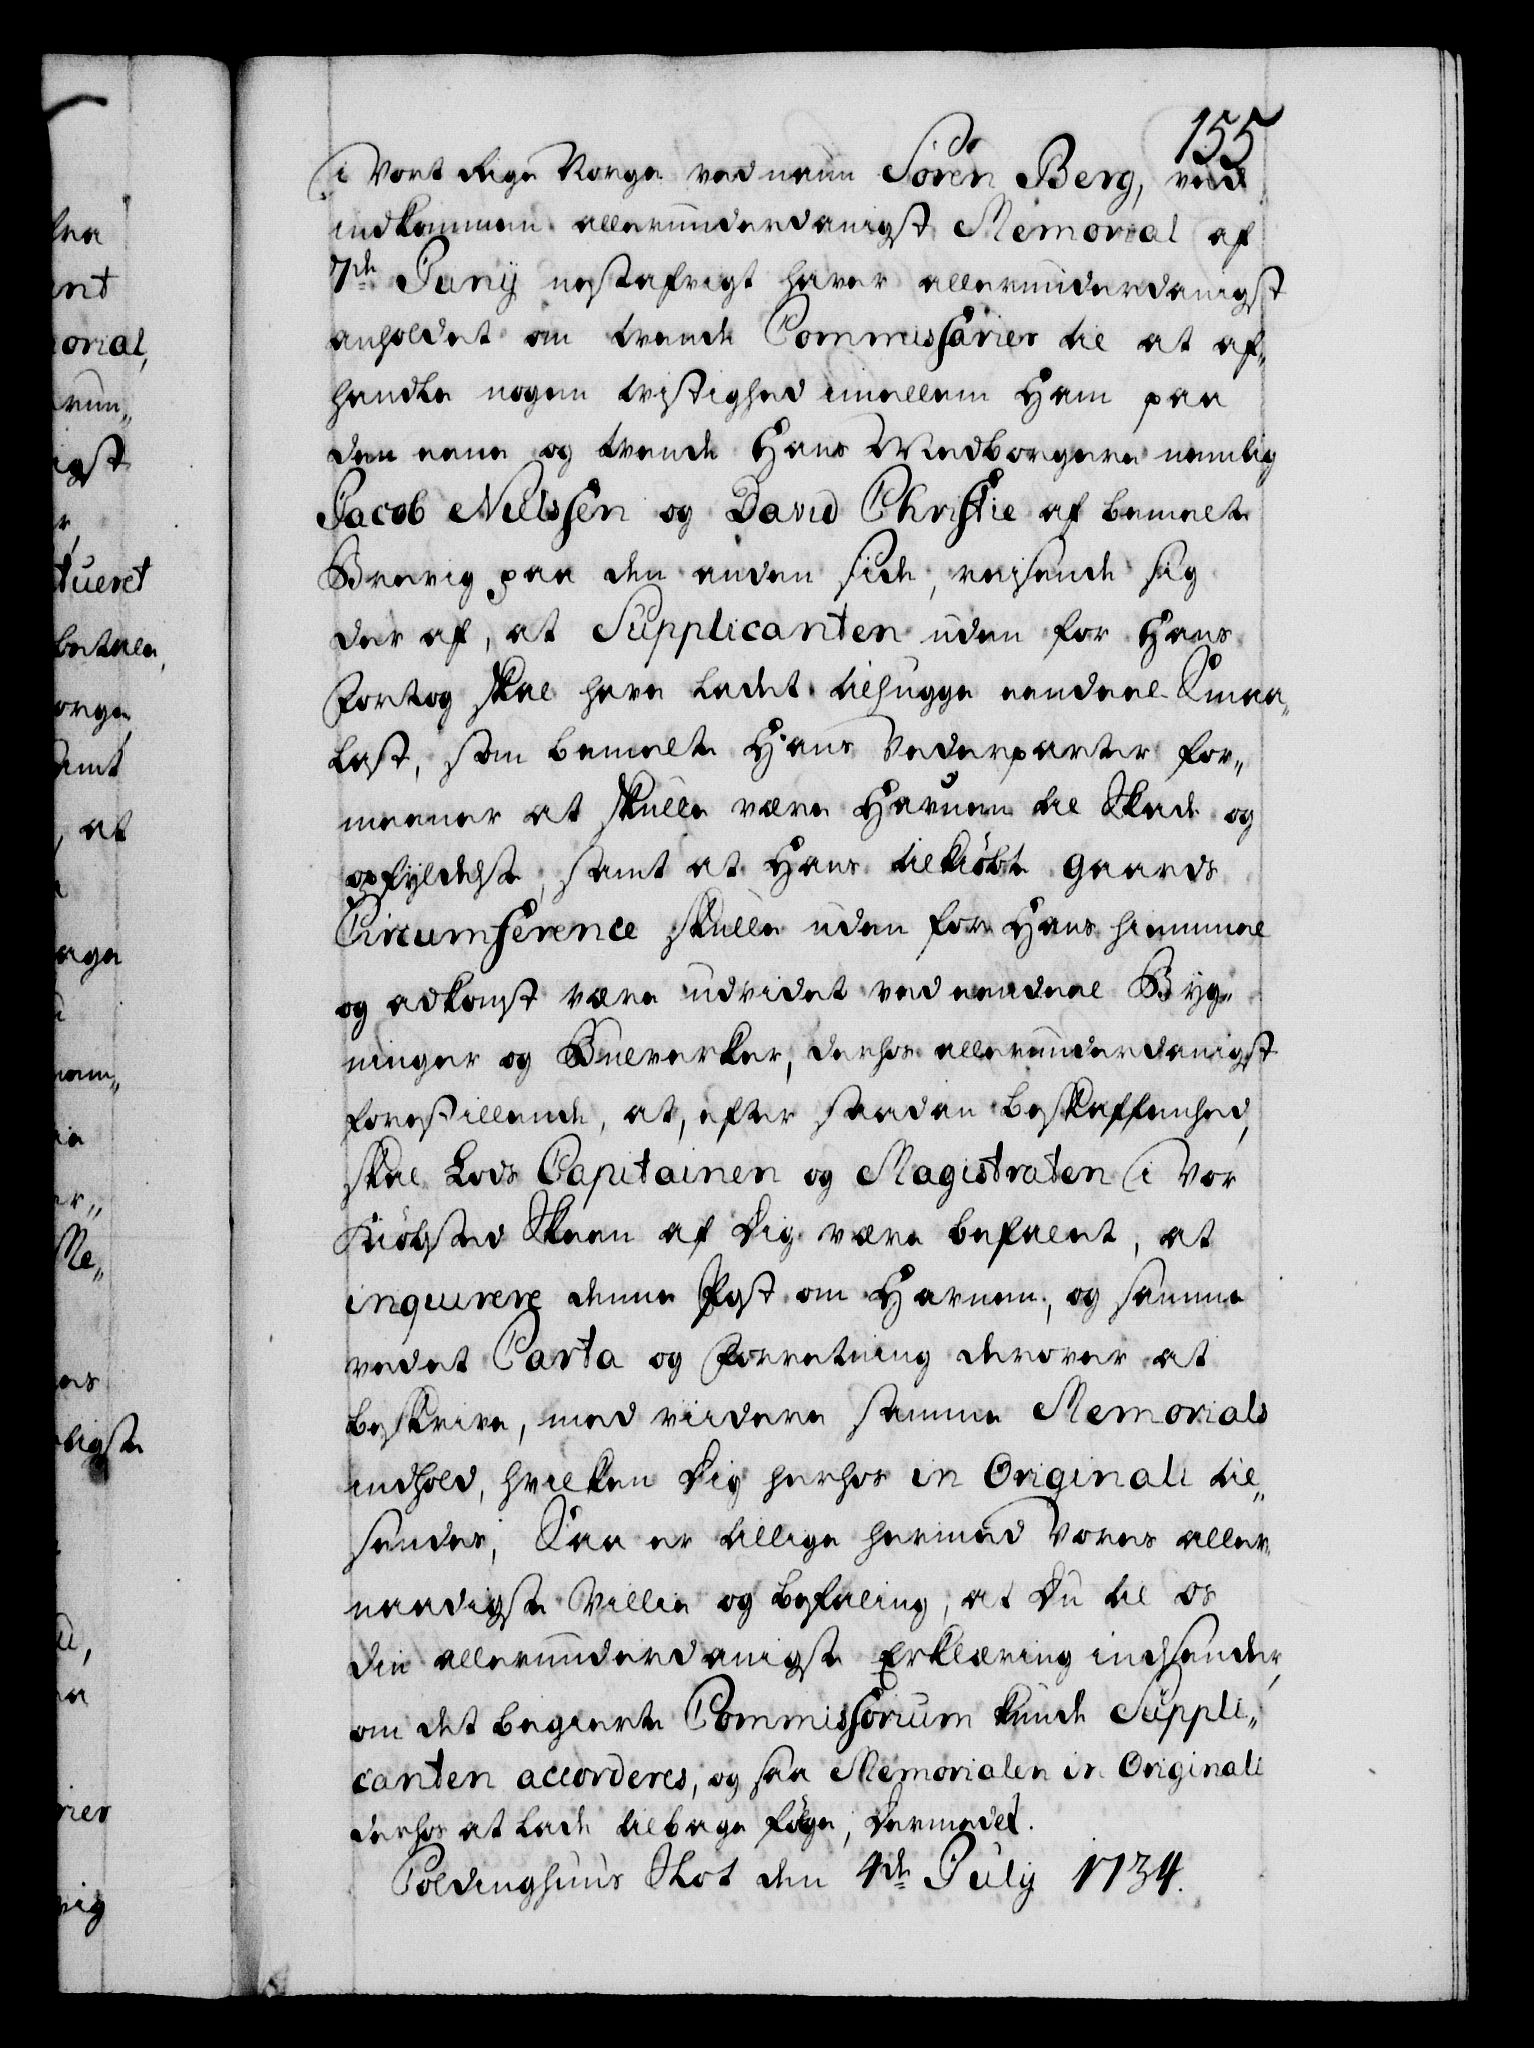 155
i Vort Rige Norge ved navn Sören Berg, ved
indkommen allerunderdanigst Memorial af
7de Juny nestafvigt haver allerunderdanigst
anholdet om tvende Commissarier til at af„
handle nogen tvistighed imellem Ham paa
den eene og tvende Hans Medborgere nemlig
Jacob Nielssen og David Christie af bemelte
Brevig paa den anden side, reisende sig
der af, at Supplicanten uden for Hans
Fortog skal have ladet tilhugge eendeel Smaa„
last, som bemelte Hans Vederparter for„
meener at skulle være Havnen til Skade og
opfyldelse, samt at Hans tilkiöbte gaards
Circumference skulle uden for Hans hiemmel
og adkomst være udvidet ved eendeel Byg„
ninger og Bulverker, derhos allerunderdanigst
forestillende, at, efter saadan beskaffenhed,
skal Lods Capitainen og Magistraten i Vor
Kiöbsted Skeen af Dig være befalet, at
inquirere denne Post om Havnen, og samme
vedet Carta og Forretning derover at
beskrive, med viidere samme Memorials
indhold, hvilken Dig herhos in Originali til„
sendes; Saa er tillige hermed Vores aller„
naadigste Villie og befaling, at Du til os
din allerunderdanigste Erklæring indsender,
om det begierte Commissorium kunde Suppli„
canten accorderes, og saa Memorialen in Originali
derhos at lade tilbage fölge, Dermedet.
Coldinghuus Slot den 4de July 1734.